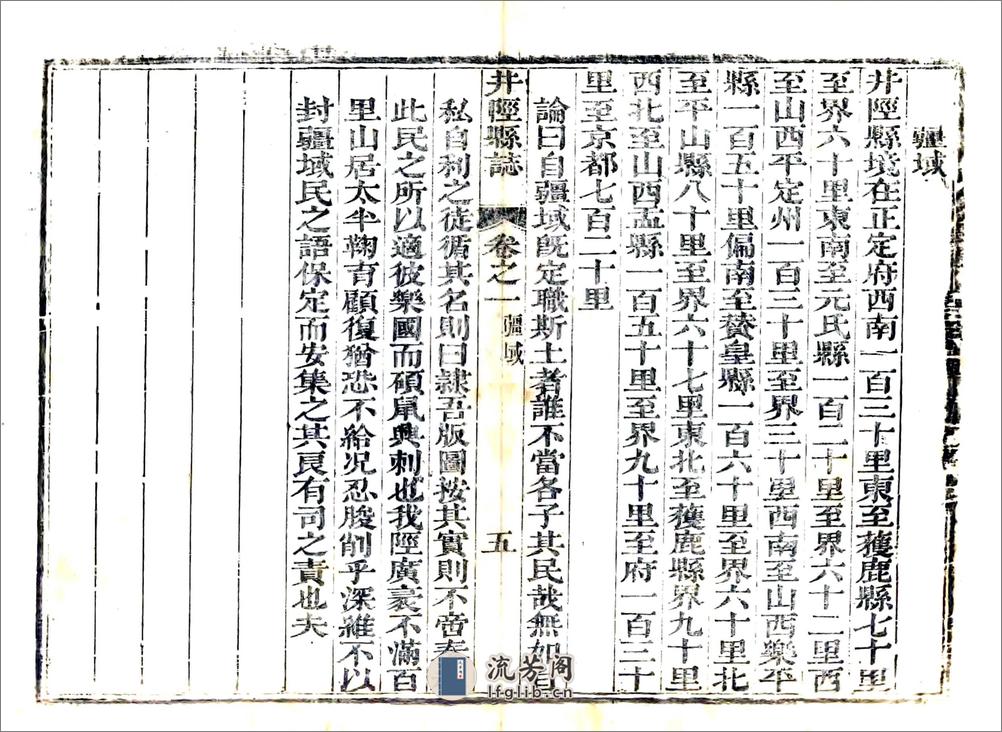 疆域
井陘縣境在正定府西南一百二十里東至獲鹿縣七十里
至界六十里東南至元氏縣一百二十里至界六十二里西
至山西平定州一百三十里至界三十里西南至山西樂平
縣一百五十里偏南至贊皇縣一百六十里至界六十里北
至平山縣八十里至界六十七里東北至獲鹿縣界九十里
西北至山西盂縣一百五十里至界九十里至府一百三十
里至京都七百二十里
論曰自疆域旣定職斯土者誰不當各子其民哉無如
井陘縣誌 卷之一 疆域 五
私自利之徒循其名則曰隸吾版圖按其實則不啻秦
此民之所以適彼樂國而碩鼠興刺也我陘廣袤不滿百
里山居太半鞠育顧復猶恐不給况忍朘削乎深維不以
封疆域民之語保定而安集之其良有司之責也夫
流芳阁
lfglib.cn